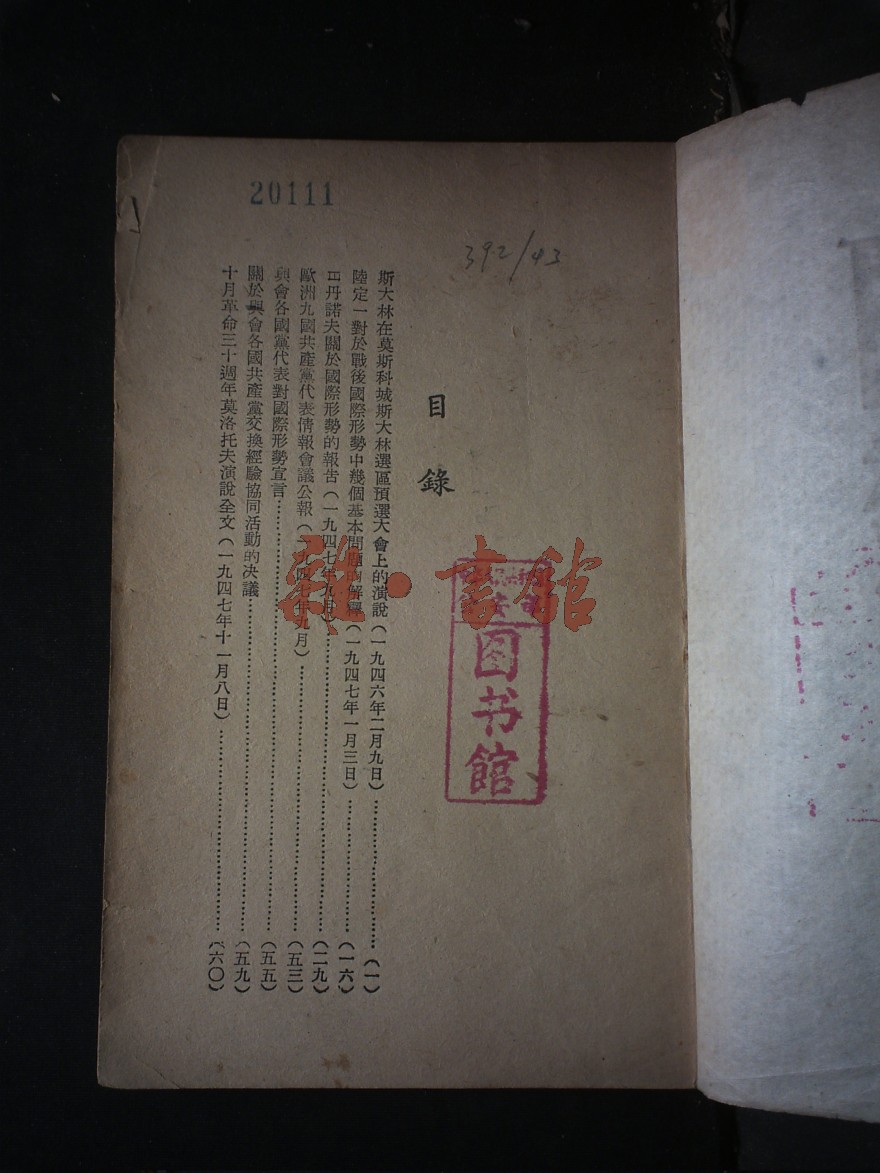 20111
392/43
目錄
斯大林在莫斯科城斯大林選區預選大會上的演說(一九四六年二月九日)……(一)
陸定一對於戰後國際形勢中幾個基本問題的解釋(一九四七年一月三日)……(一六)
日丹諾夫關於國際形勢的報告(一九四七年九月)……(二九)
歐洲九國共產黨代表情報會議公報(一九四七年九月)……(五三)
與會各國黨代表對國際形勢宣言……(五五)
關於與會各國共產黨交換經驗協同活動的決議……(五九)
十月革命三十週年莫洛托夫演說全文(一九四七年十一月八日)……(六〇)
图书館
雜·書館